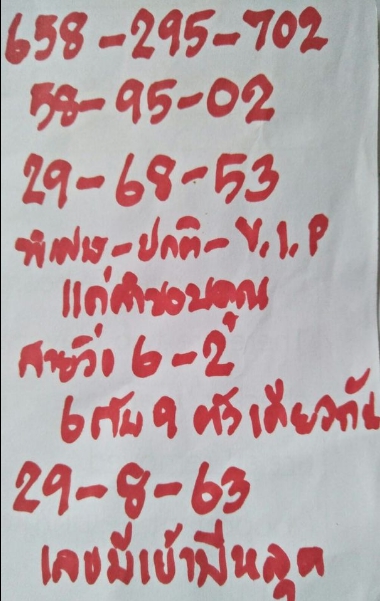 658-295-702
58-95-02
29-68-53
พิเศษ-ปกติ-V.I.P
แค่คำขอบคุณ
สายวิ่ง 6-2
6 กับ 9 ตัวเดียวกัน
29-8-63
เลขมีเข้ามีหลุด